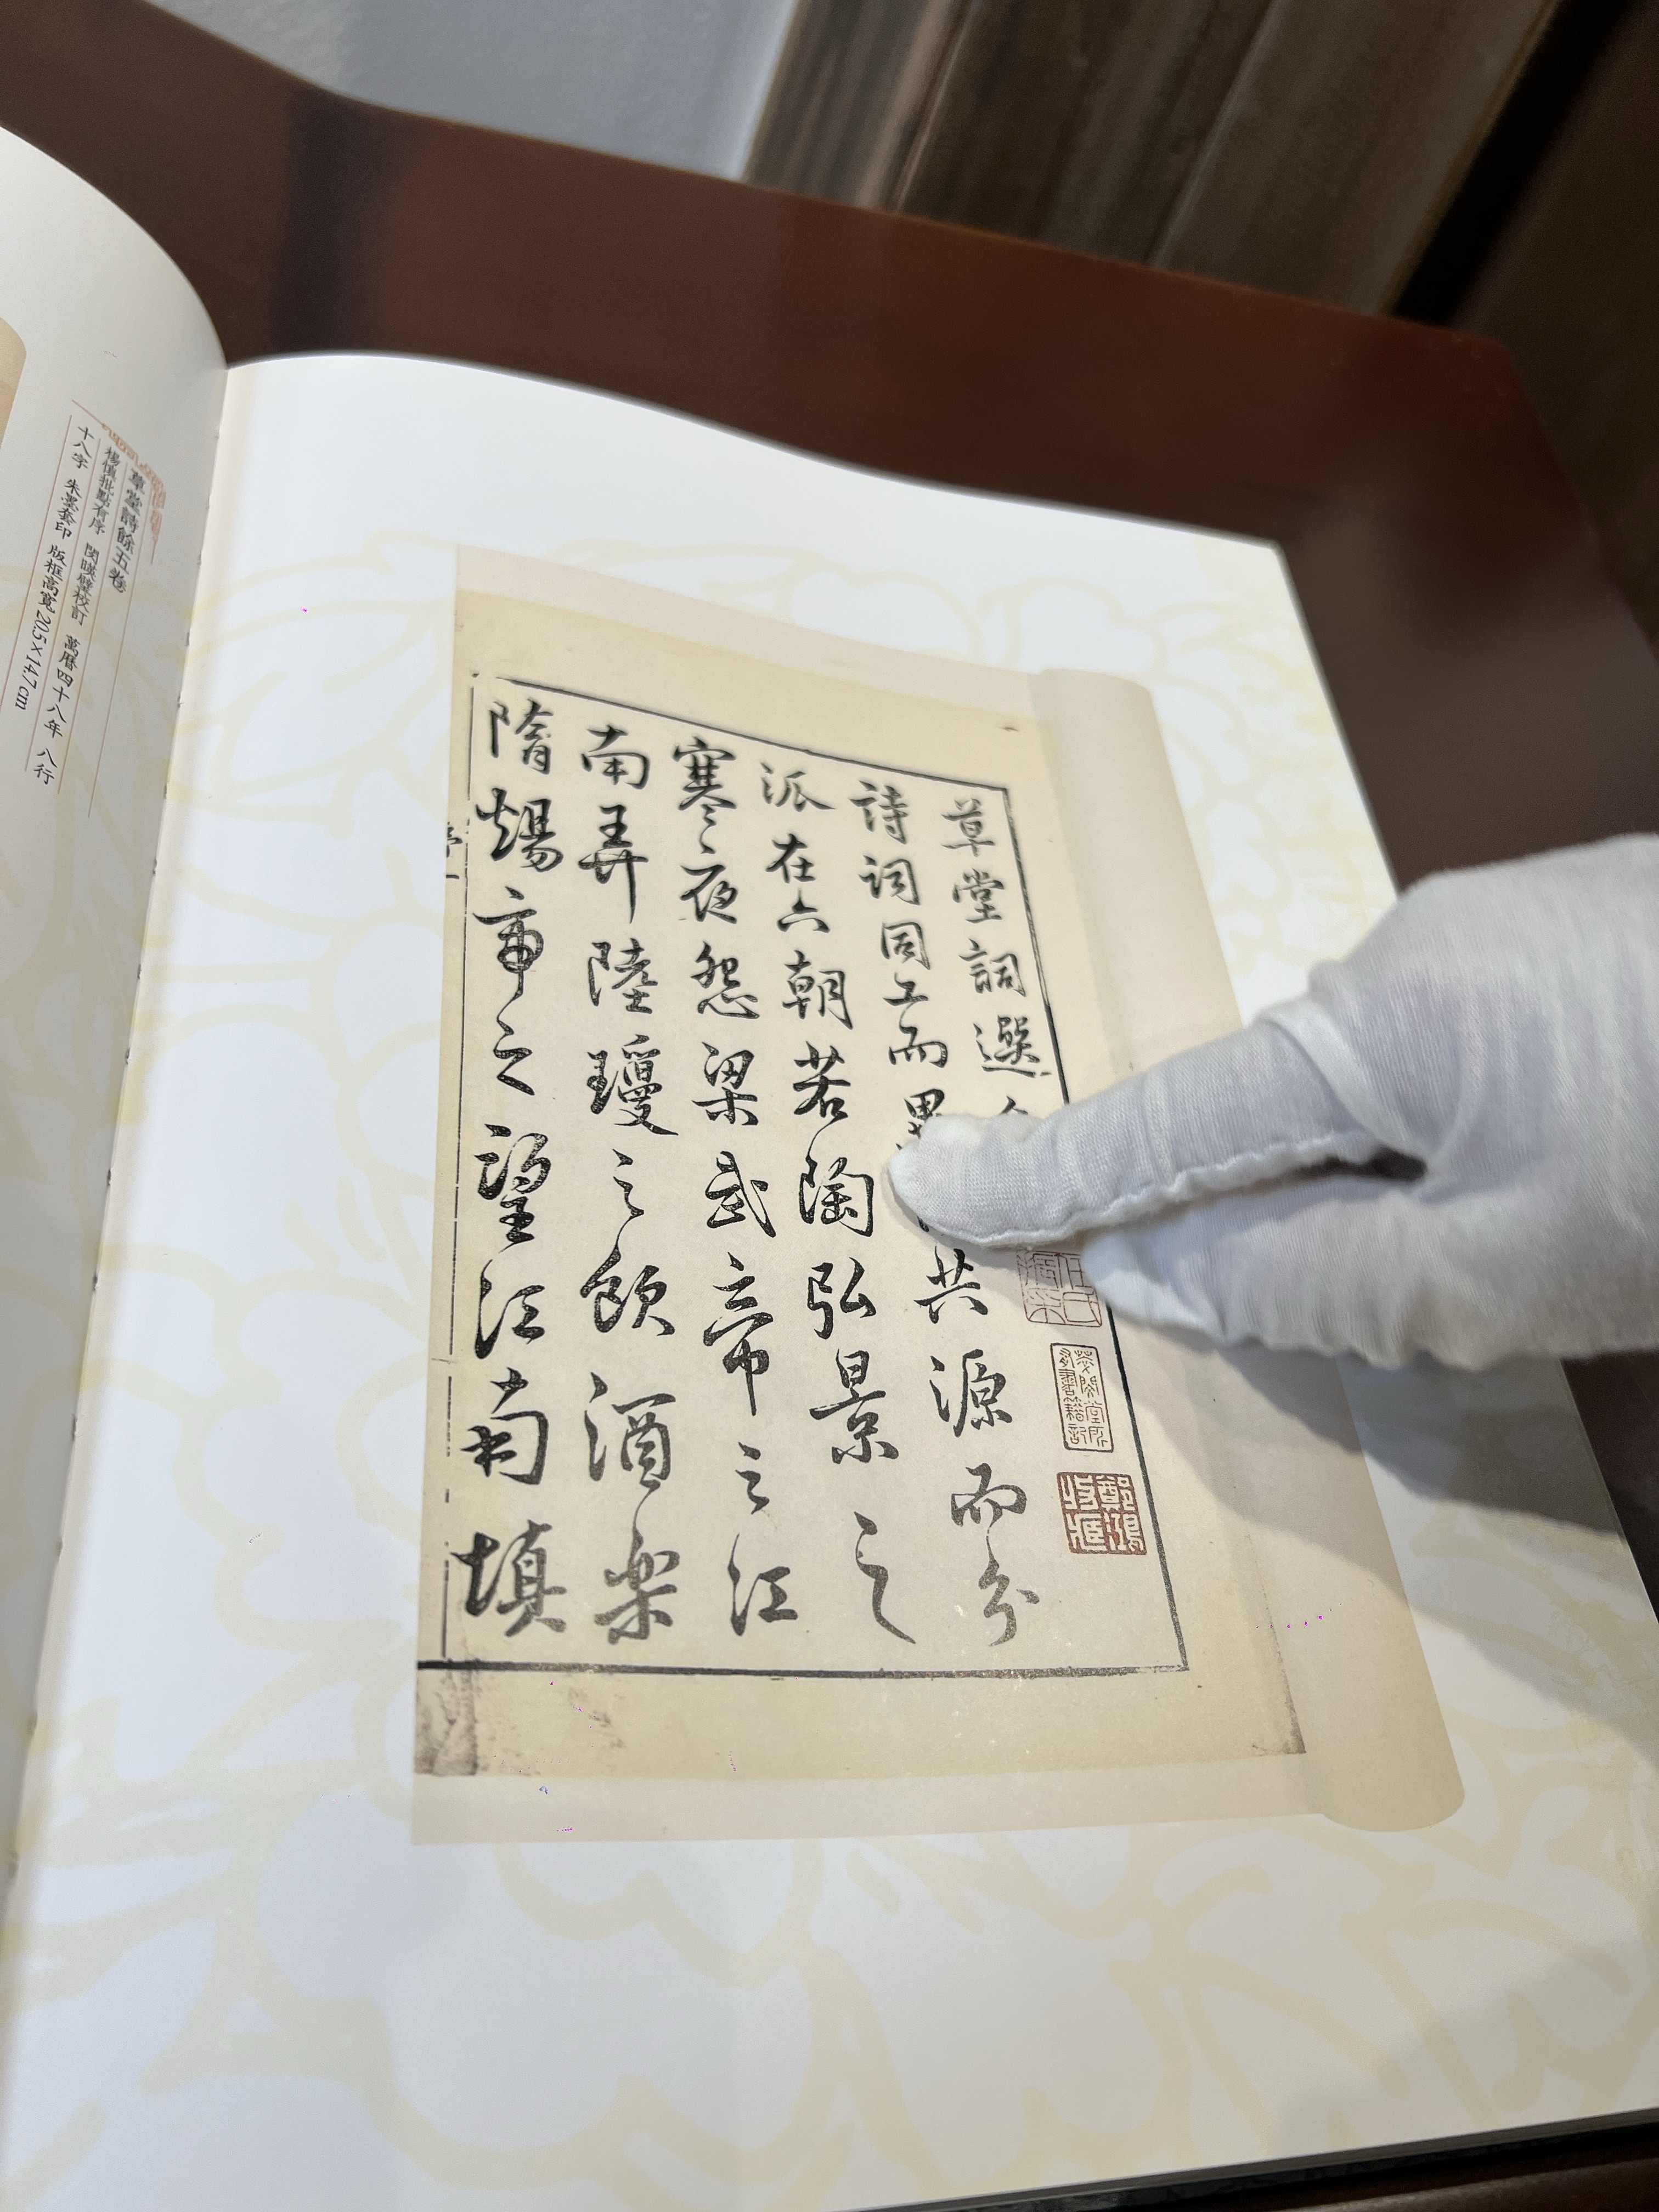 草堂詞選
詩詞同工而異共源而分
派在六朝若陶弘景之
寒夜怨梁武帝之江
南弄陸瓊之飲酒樂
隋煬帝之望江南填
草堂詩餘五卷
楊慎批點有序 閔暎璧校訂 萬曆四十八年 八行
十八字 朱墨套印 版框高寬20.5×14.7cm